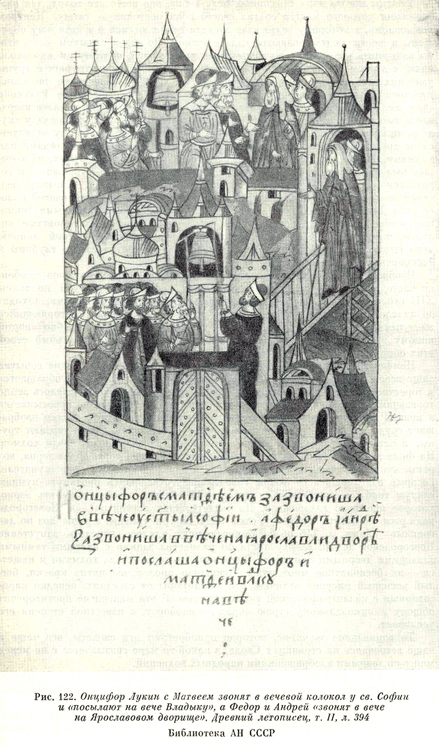 ѡнцыфоръ сматѳѣемъ зазвониша
въвѣче оустыꙗ софіи . а федоръ
зазвониша ввѣче на ꙗрославли дворѣ
и послаша ѡнцыфоръ и
матѳеи влкꙋ
навѣ
че
Рис. 122. Онцифор Лукин с Матвеем звонят в вечевой колокол у св. Софии
и «посылают на вече Владыку», а Федор и Андрей «звонят в вече
на Ярославовом дворище». Древний летописец, т. II, л. 394
Библиотека АН СССР